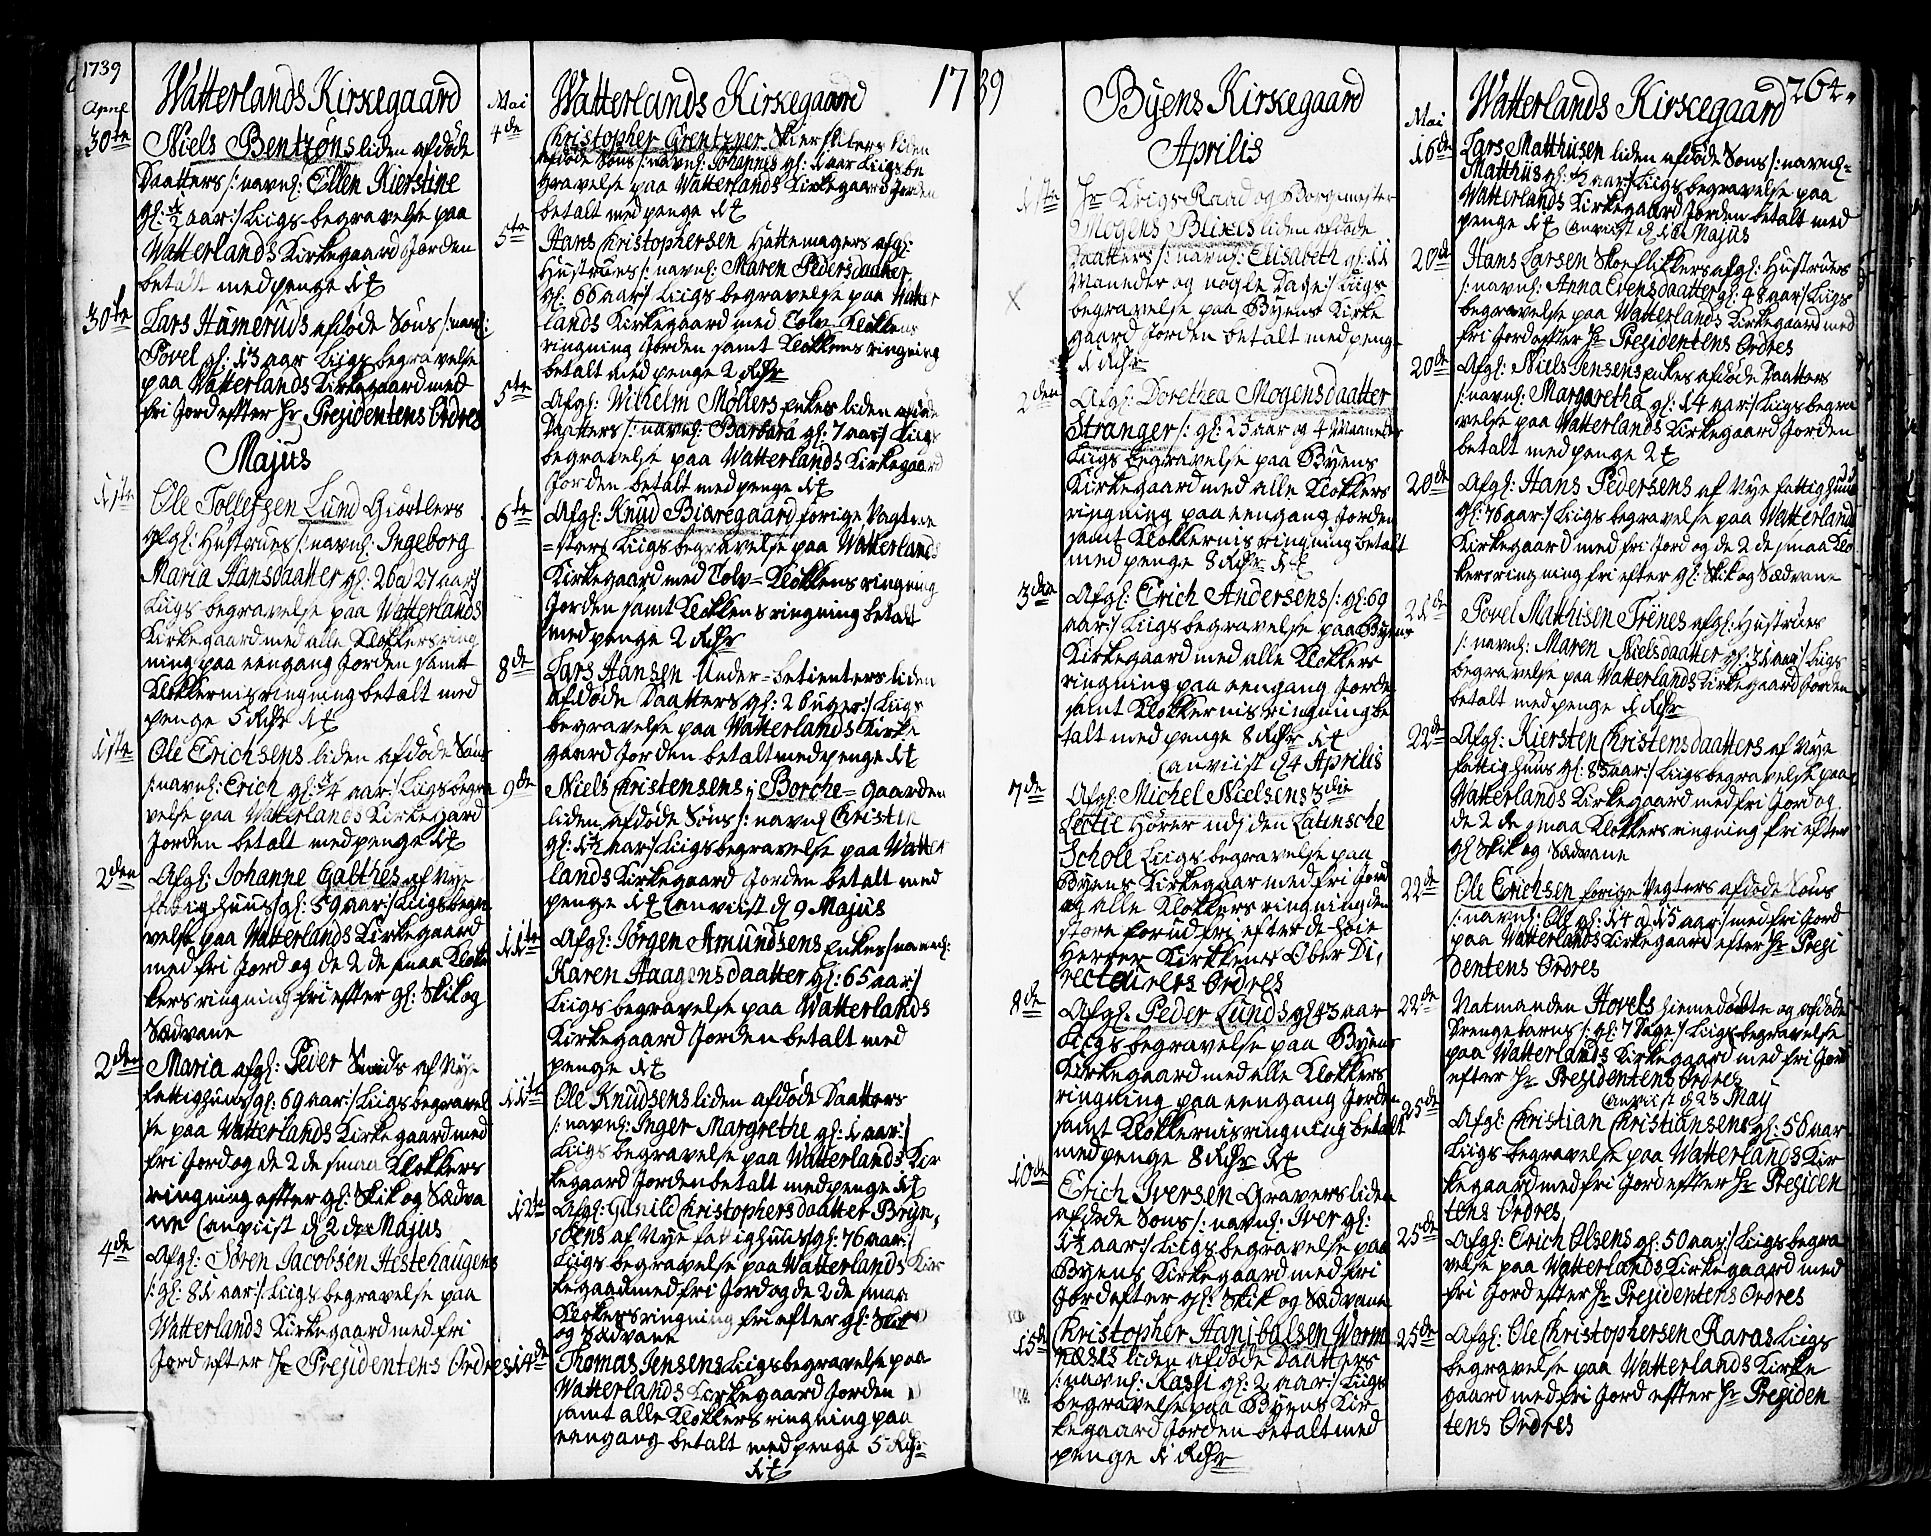 1739
April
Watterlands Kirkegaard
30te
Niels Bentzøns liden afdøde
Daatters /: navnl: Ellen Kierstine
gl: ½ aar :/ Liigs-begravelse paa
Watterlands Kirkegaard Jorden
betalt med penge
30te
Lars Hameruds afdøde Søns /: navnl:
Povel gl: aar Liigs begravelse
paa Watterlands Kirkegaard med
fri Jord efter Hr Presidentens Ordres
Majus
1ste
Ole Tollefsen Lund Giørtlers
afgl: Hustrues /: navnl: Ingeborg
Maria Hansdaatter gl: 26 a 27 aar :/
Liigs begravelse paa Watterlands
Kirkegaard med alle Klokkers ring
ning paa eengang Jorden samt
Klokkernis ringning betalt med
penge 5 Rdr
1ste
Ole Erichsens liden afdøde Søns
/: navnl: Erich gl: aar :/ Liigs begra
velse paa Watterlands Kirkegard
Jorden betalt med penge
2den
Afgl: Johanne Gabthes af Nye
fattighuus /: gl: 59 aar :/ Liigs begra
velse paa Watterlands Kirkegaard
med fri Jord og de 2 de smaa Klok
kers ringning fri efter gl: Skik og
Sædvane
2den
Maria afgl: Peder Smids af Nye
fattighuus gl: 69 aar :/ Liigs begravel
se paa Watterlands Kirkegaard med
fri Jord og de 2 de smaa Klokkers
ringning efter gl: Skik og Sædva
ne (anviist d 2den Majus
4de
Afgl: Søren Jacobsen Hestehaugens
/: gl: 81 aar :/ Liigs begravelse paa
Watterlands Kirkegaard med fri
Jord efter Hr Presidentens Ordres
Mai
Watterlands Kirkegaard
4de
Christopher Grentzner Skierslibers liden
afdøde Søns /: navnl: Johannes gl: 1 aar Liigs be
gravelse paa Watterlands Kirkegaard Jorden
betalt med penge
5te
Hans Christophersen Hattemagers afgl:
Hustrues /: navnl: Maren Pedersdaatter
gl: 66 aar :/ Liigs begravelse paa Watter
lands Kirkegaard med Tolv-Klokkens
ringning Jorden samt Klokkens ringning
betalt med penge 2 Rdr
5te
Afgl: Wilhelm Møllers Enkes liden afdøde
Daatters /: navnl: Barbara gl: 7 aar :/ Liigs
begravelse paa Watterlands Kirkegaard
Jorden betalt med penge
6te
Afgl: Knud Biøregaard forige Vagtme
=sters Liigs begravelse paa Watterlands
Kirkegaard med Tolv=Klokkens ringning
Jorden samt Klokkens ringning betalt
med penge 2 Rdr
8de
Lars Hansen Under-betienters liden
afdøde Daatters gl: 2 Uger :/ Liigs
begravelse paa Watterlands Kirke
gaard Jorden betalt med penge
9de
Niels Christensens i Borche=gaarden
liden afdøde Søns /: navnl Christen
gl: 1½ aar :/ Liigs begravelse paa Watter
lands Kirkegaard Jorden betalt med
penge (anviist d 9 Majus
11te
Afgl: Jörgen Amundsens Enkes /: navnl:
Karen Haagensdaatter gl: 65 aar :/
Liigs begravelse paa Watterlands
Kirkegaard Jorden betalt med
penge
11te
Ole Knudsens liden afdøde Daatters
/: navnl: Inger Margrethe gl: 1 aar :/
Liigs begravelse paa Watterlands Kir
kegaard Jorden betalt med penge
12te
Afgl: Gunild Christophersdaatter Bryn,
ildens af Nye fattighuus /: gl: 76 aar :/
Liigs begravelse paa Watterlands Kir
kegaard med fri Jord og de 2 de smaa
Klokkers ringning fri efter gl: Skik
og Sædvane
14de
Thomas Jensens Liigs begravelse paa
Watterlands Kirkegaard Jorden
samt alle Klokkers ringning paa
eengang betalt med penge 5 Rdr
1739
Byens Kirkegaard
Aprilis
1ste
Hr Krigs Raad og Borgemester
Mogens Blixes liden afdøde
Daatters /: navnl: Elisabeth gl: 11
Maneder og nogle Dage :/ Liigs
begravelse paa Byens Kirke
gaard Jorden betalt med penge
1 Rdr
2den
Afgl: Dorethea Mogensdaatter
Stranger /: gl: aar og 4 Maaneder
Liigs begravelse paa Byens
Kirkegaard med alle Klokkers
ringning paa eengang Jorden
samt Klokkernis ringning betalt
med penge 8 Rdr
3den
Afgl: Erich Andersens /: gl: 69
aar :/ Liigs begravelse paa Byens
Kirkegaard med alle Klokkers
ringning paa eengang Jorden
samt Klokkernis ringning be
talt med penge 8 Rdr
(anviist d 4 Aprilis
7de
Afgl: Michel Nielsens 3die
Lectie Hører udj den Latinsche
Schole Liigs begravelse paa
Byens Kirkegaar med fri Jord
og alle Klokkers ringning den
store forud fri efter de Høie
Herrer Kirkkens Ober Di,
recteurers Ordres
8de
Afgl: Peder Lunds gl 43 aar
Liigs begravelse paa Byens
Kirkegaard med alle Klokkers
ringning paa eengang Jorden
samt Klokkernis ringning betalt
med penge 8 Rdr
10de
Erich Iversen Gravers liden
afdøde Søns /: navnl: Iver gl:
1½ aar :/ Liigs begravelse paa
Byens Kirkegaard med fri
Jord efter gl: Skik og Sædvane
15de
Christopher Hanibalsen Worm
næses liden afdøde Daatters
/: navnl: Kassi gl: 2 aar :/ Liigs
begravelse paa Byens Kir
kegaard Jorden betalt med
penge 1 Rdr
Mai
Watterlands Kirkegaard
264.
16de
Lars Matthisen liden afdøde Søns /: navnl=
Matthis gl: aar :/ Liigs begravelse paa
Watterlands Kirkegaard Jorden betalt med
penge (anviist d Majus
20de
Hans Larsen Skoeflikkers afgl: Hustrues
/: navnl: Anna Evensdaatter gl: 48 aar :/ Liigs
begravelse paa Watterlands Kirkegaard med
fri Jord efter Hr Presidentens Ordres
20de
Afgl: Niels Jensens Enkes afdøde Daatters
/: navnl: Margaretha gl: 14 aar :/ Liigs begra
velse paa Watterlands Kirkegaard Jorden
betalt med penge
20de
Afgl: Hans Pedersens af Nye fattighuus
gl: 76 aar :/ Liigs begravelse paa Watterlands
Kirkegaard med fri Jord og de 2 de smaa Klo
kers ringning fri efter gl: Skik og Sædvane
21de
Povel Mathisen Trönes afgl: Hustrues
/: navnl: Maren Nielsdaatter gl: 31 aar :/ Liigs
begravelse paa Watterlands Kirkegaard Jorden
betalt med penge 1 Rdr
22de
Afgl: Kiersten Christensdaatters af Nye
fattighuus gl: aar :/ Liigs begravelse paa
Watterlands Kirkegaard med fri Jord og
de 2 de smaa Klokkers ringning fri efter
gl Skik og Sædvane
22de
Ole Erichsen forige Vegters afdøde Søns
/: navnl: Ole gl: 14 a 15 aar :/ med fri Jord
paa Watterlands Kirkegaard efter Hr Presi
dentens Ordres
22de
Natmanden Hovels hiemedøbte og afdøde
Drengebarns /: gl: 7 Dage :/ Liigs begravelse
paa Watterlands Kirkegaard med fri Jord
efter Hr Presidentens Ordres
(anviist d 23 Maij
25de
Afgl: Christian Christiansens gl: 56 aar
Liigs begravelse paa Watterlands Kir
kegaard med fri Jord efter Hr Presiden
tens Ordres
25de
Afgl: Erich Olsens gl: 50 aar :/ Liigs begra
velse paa Watterlands Kirkegaard med
fri Jord efter Hr Presidentens Ordres
25de
Afgl: Ole Christophersen Karas Liigs
begravelse paa Watterlands Kirke
gaard med fri Jord efter Hr Presiden
tens Ordres